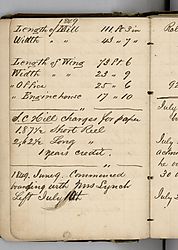 1869
Length of Mill 111 ft 3 in
Width " " 43 " 7 "
Length of Wing 78 ft 6
Width " " 23 " 9
" Office 25 " 6
" Enginehouse 17 " 10
S.C. Hill charges for paper
1.87½ Short Reel
2,62½ Long "
1 years credit.
1869. June 9. Commenced
boarding with Mrs Lynch
Left July
July